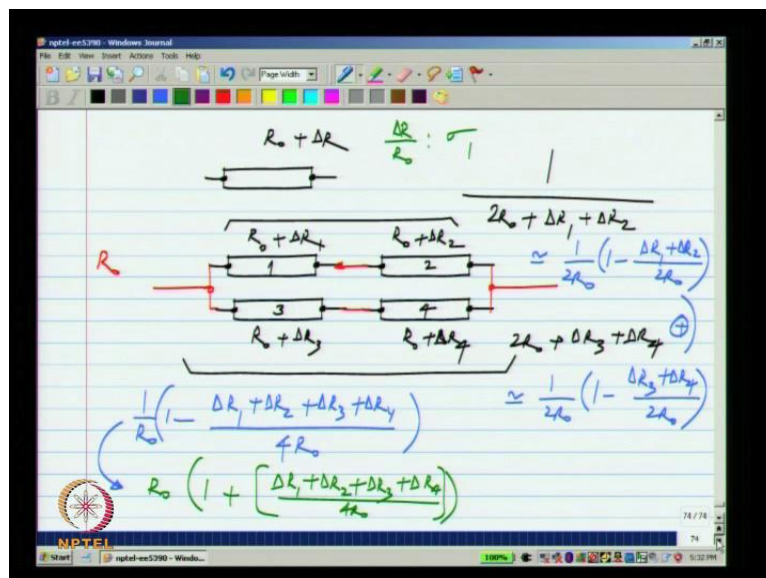 nptel-ee5390 - Windows Journal
File Edit View Insert Actions Tools Help
Page Width
B I
R₀ + ΔR
ΔR/R₀ : σ₁
1/(2R₀ + ΔR₁ + ΔR₂)
R₀ + ΔR₁ R₀ + ΔR₂
≃ 1/2R₀ (1 - (ΔR₁ + ΔR₂)/2R₀)
R₀
1 2
3 4
+
R₀ + ΔR₃ R₀ + ΔR₄
2R₀ + ΔR₃ + ΔR₄
1/R₀ (1 - (ΔR₁ + ΔR₂ + ΔR₃ + ΔR₄)/4R₀)
≃ 1/2R₀ (1 - (ΔR₃ + ΔR₄)/2R₀)
R₀ (1 + [(ΔR₁ + ΔR₂ + ΔR₃ + ΔR₄)/4R₀])
NPTEL
74 / 74
74
Start nptel-ee5390 - Windo...
100% 5:32 PM